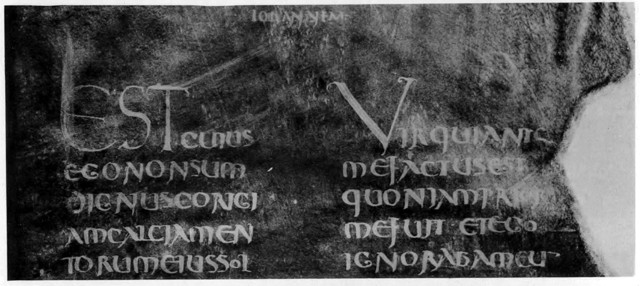 IOHANNEM
EST CUIUS
EGONONSUM
DIGNUSCORIGI
AMCALCIAMEN
TORUMEIUSSOL
VIRQUIANTE
MEFACTUSEST
QUONIAMPRIOR
MEFUIT ETEGO
IGNORABAMEU